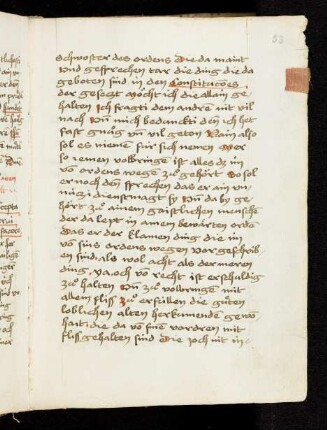 53
schwoster des ordens Die da maint
vnd gesprechen tar die ding die da
geboten sind in den Constitucōes
der gesetzt möcht ich die allain ge
halten Ich fragti den andrē nit vil
nach Vn̄ mich bedunckti den ich het
fast gnůg vn̄ vil geton Nain also
sol es nieme für sich nemen Wer
so iemen volbringe ist alles dz im
vō ordens wegē zů gehört So sol
er noch den sprechen das er ain vn
nütz dienstmagt sy Vn̄ da by ge
hört zů ainem gaistlichen mensche
der da lept in amen bewärten ordē
Das er der klainen ding die im
vō sins ordens wegen vorgeschrib
en sind, als wol acht als der meren
ding, Wa noch vō recht ist er schuldig
zů halten Vn̄ zů volbringē mit
allem fliss Zů erfüllen die gůten
loblichen alten herkumende gewō
hait die da vō sinē vordren mit
fliss gehalten sind Die ioch nit in